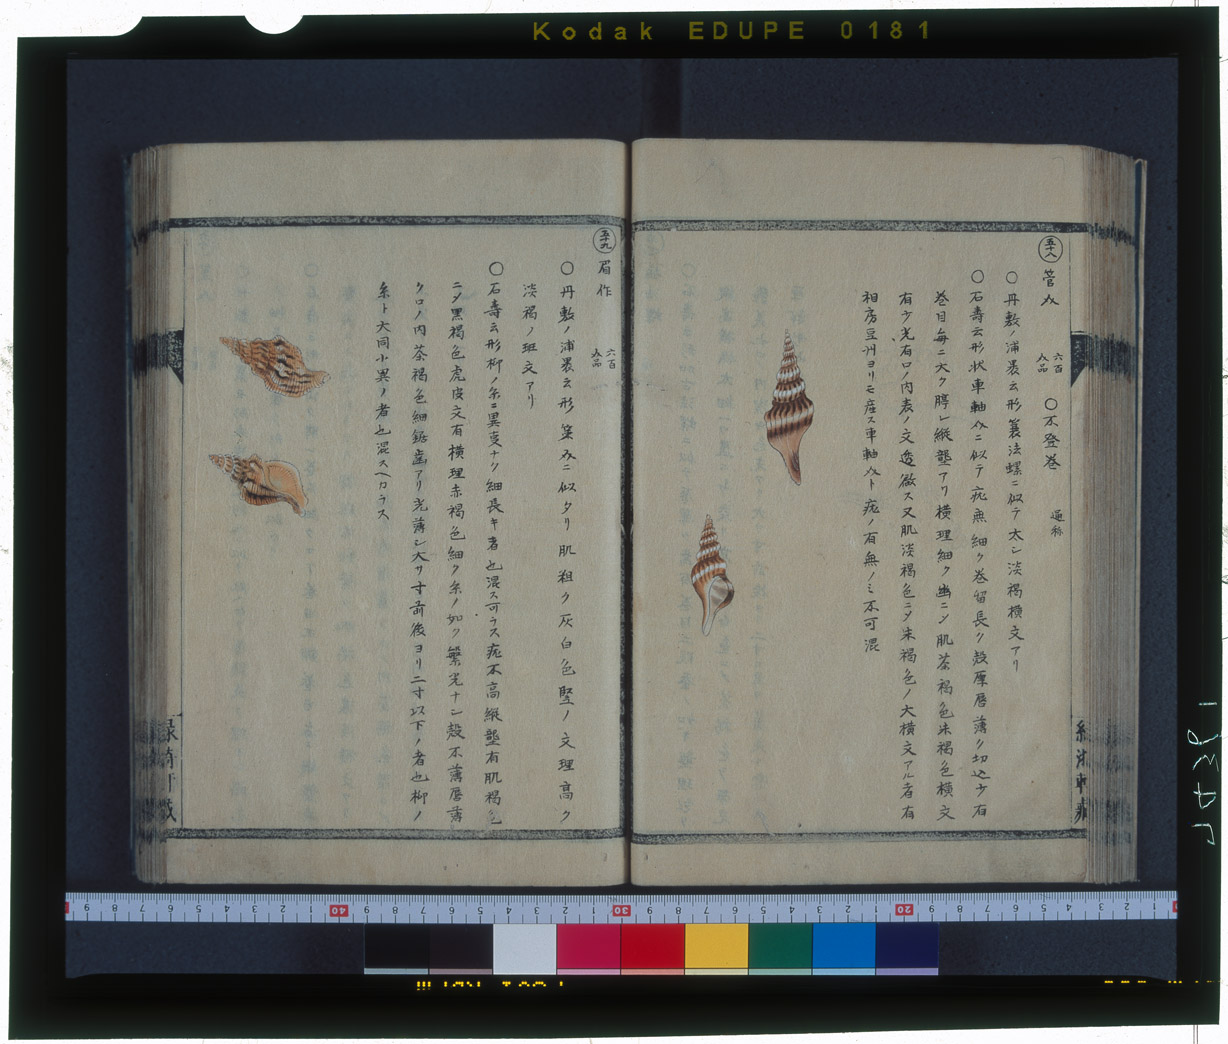 Kodak EDUPE 0181
五十八 管 六百 品 〇不登巻 通称
〇丹敷ノ浦裏云形蓑法螺ニ似テ太シ淡褐横文アリ
〇石壽云形状車軸ニ似テ疣無細ク巻留長ク殻厚唇薄ク切込ヲ有
巻目毎ニ大ク脝レ縦壟アリ横理細ク幽ニシテ肌茶褐色朱褐色横文
有ヲ光有口ノ内表ノ文透徹ス又肌淡褐色ニシテ朱褐色ノ大横文アル者有
相房豆州ヨリモ産ス車軸ト疣ノ有無ノミ不可混
五十九 眉作 六百 品
〇丹敷ノ浦裏云形ニ似タリ肌粗ク灰白色竪ノ文理高ク
淡褐ノ班文アリ
〇石壽云形柳ノ糸ニ異事ナク細長キ者也混ス可ラス疣不高縦壟有肌褐色
ニシテ黒褐色虎皮文有横理赤褐色細ク糸ノ如ク繁光ナシ殻不薄唇薄
ク口ノ内茶褐色細鋸歯アリ光薄シ大サ寸前後ヨリ二寸以下ノ者也柳ノ
糸ト大同小異ノ者也混スヘカラス